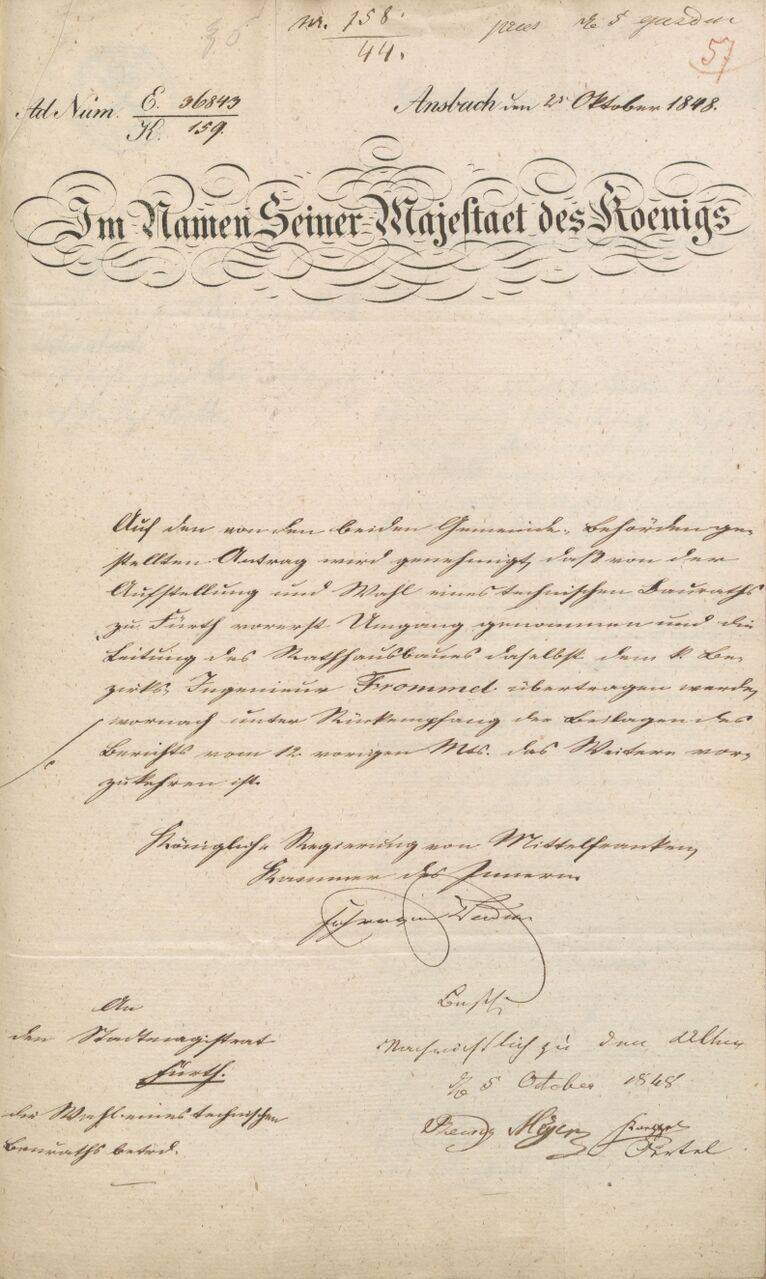 Nr. 158.
44.
57
Ad Núm. E. 36843
K. 159.
Ansbach den 2 Oktober 1848.
Im Namen Seiner Majestaet des Koenigs
Auf den von den beiden Gemeinde-Behörden ge-
stellten Antrag wird genehmigt, daß von der
Aufstellung und Wahl eines technischen Bauraths
zu Fürth vorerst Umgang genommen und die
Leitung des Rathhausbaues daselbst dem k. Be-
zirks-Ingenieur Frommel übertragen werde,
wornach unter Rückempfang der Beilagen des
Berichts vom 12. vorigen Mts. das Weitere vor-
zukehren ist.
Königliche Regierung von Mittelfranken,
Kammer des Innern.
An
den Stadtmagistrat
Fürth.
der Wahl eines technischen
Bauraths betrd.
Beschl.
Nachrichtlich zu den Akten
5 October 1848
Meyer